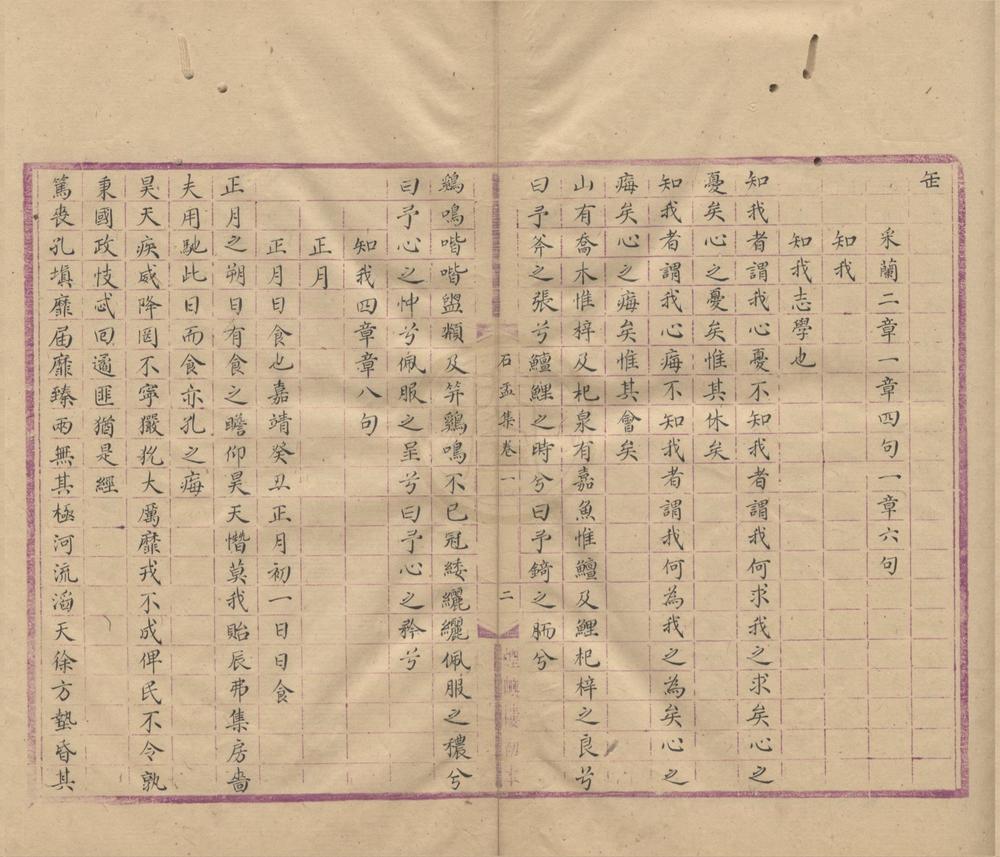 缶
采蘭二章一章四句一章六句
知我
知我志學也
知我者謂我心憂不知我者謂我何求我之求矣心之
憂矣心之憂矣惟其休矣
知我者謂我心痗不知我者謂我何為我之為矣心之
痗矣心之痗矣惟其會矣
山有喬木惟梓及杞泉有嘉魚惟鱣及鯉杞梓之良兮
曰予斧之張兮鱣鯉之時兮曰予錡之胹兮
石盂集卷一
二
鷄鳴喈喈盥頮及笄鷄鳴不已冠緌纚纚佩服之穠兮
曰予心之忡兮佩服之呈兮曰予心之矜兮
知我四章章八句
正月
正月日食也嘉靖癸丑正月初一日日食
正月之朔日有食之瞻仰昊天憯莫我貽辰弗集房嗇
夫用馳此日而食亦孔之痗
昊天疾威降罔不寧玁狁大厲靡戎不成俾民不令孰
秉國政忮忒回遹匪猶是經
篤喪孔填靡届靡臻雨無其極河流滔天徐方墊昏其